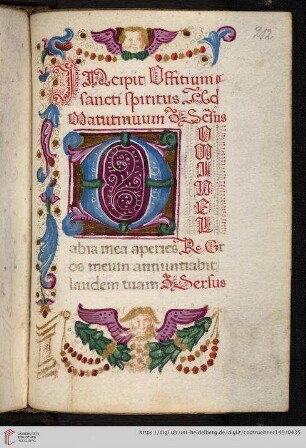 Incipit Offitium
sancti spiritus Ad
Matutinum Versus
D
OMINE L
abia mea aperies R Et
os meum annuntiabit
laudem tuam Versus
UNIVERSITÄTS-
BIBLIOTHEK
HEIDELBERG
https://digi.ub.uni-heidelberg.de/diglit/codtruebner149/0435